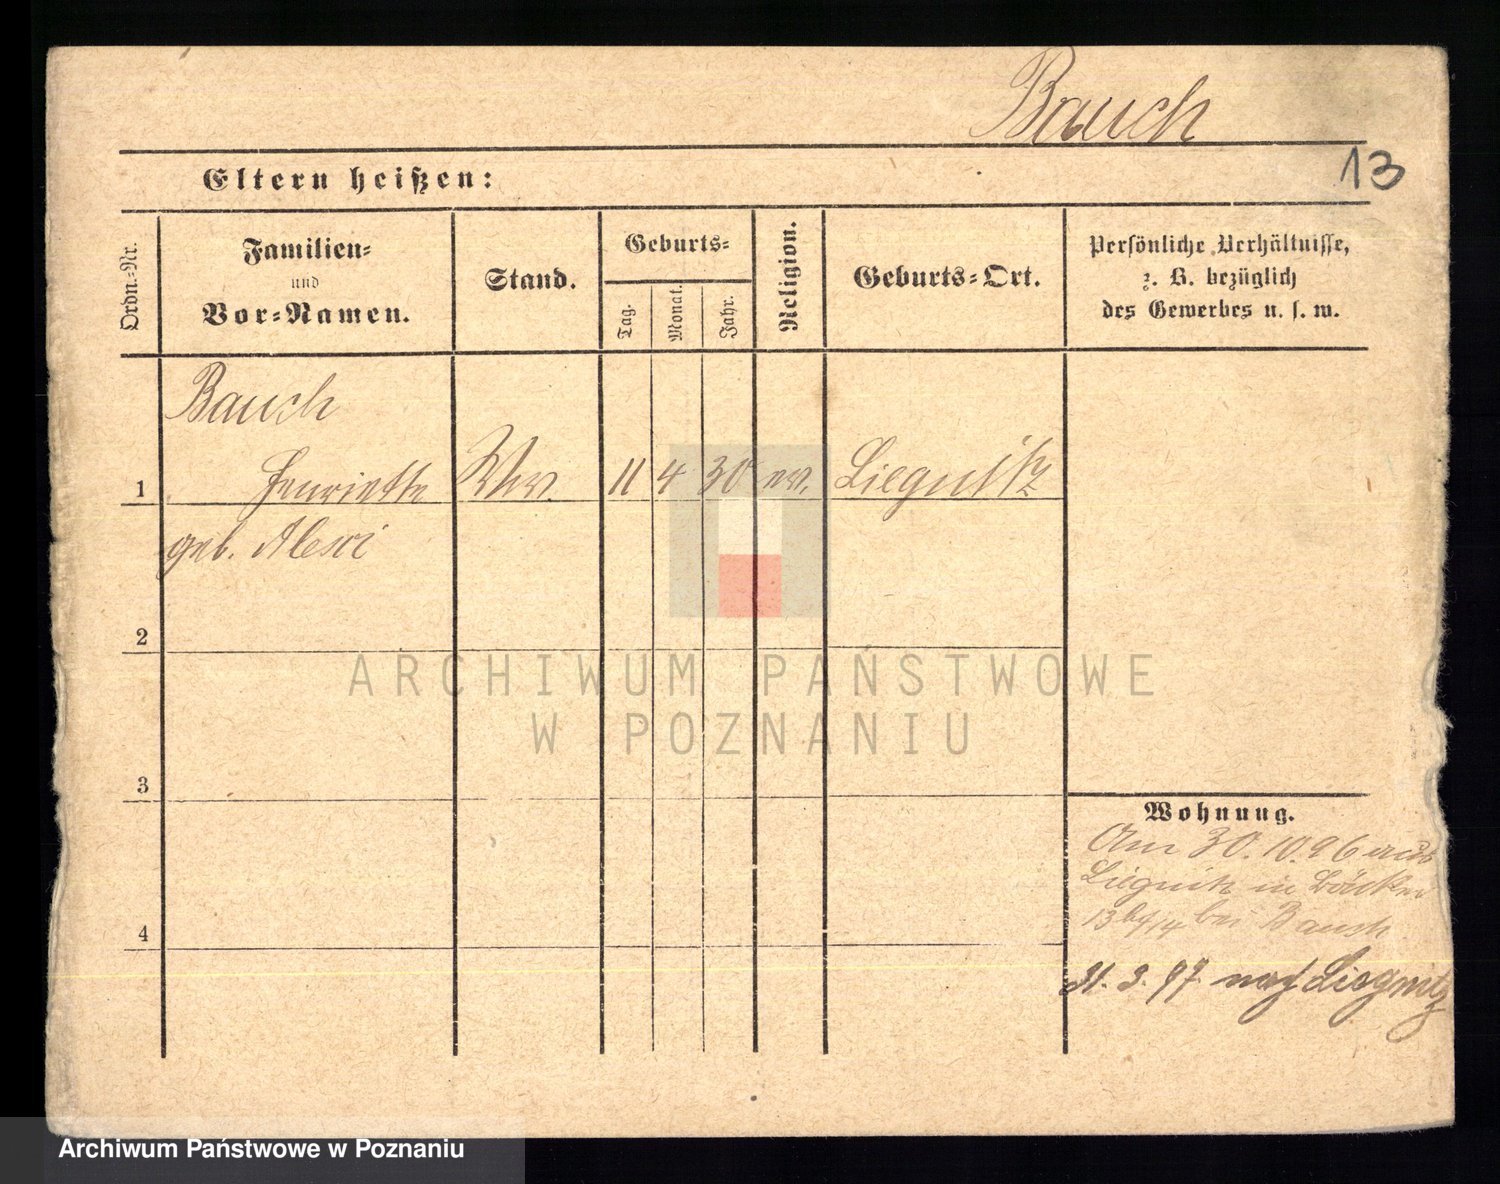 Bauch
13
Eltern heißen:
Ordn.-Nr.
Familien-
und
Vor-Namen.
Stand.
Geburts-
Tag.
Monat.
Jahr.
Religion.
Geburts-Ort.
Persönliche Verhältnisse,
z. B. bezüglich
des Gewerbes u. s. w.
Bauch
1 Henriette Ww. 11 4 30 ev. Liegnitz
geb.
2
ARCHIWUM PAŃSTWOWE
W POZNANIU
3
Wohnung.
Am 30.10.96 aus
Liegnitz in
13 bei Bauch
4
31. 3. 97 nach Liegnitz
Archiwum Państwowe w Poznaniu